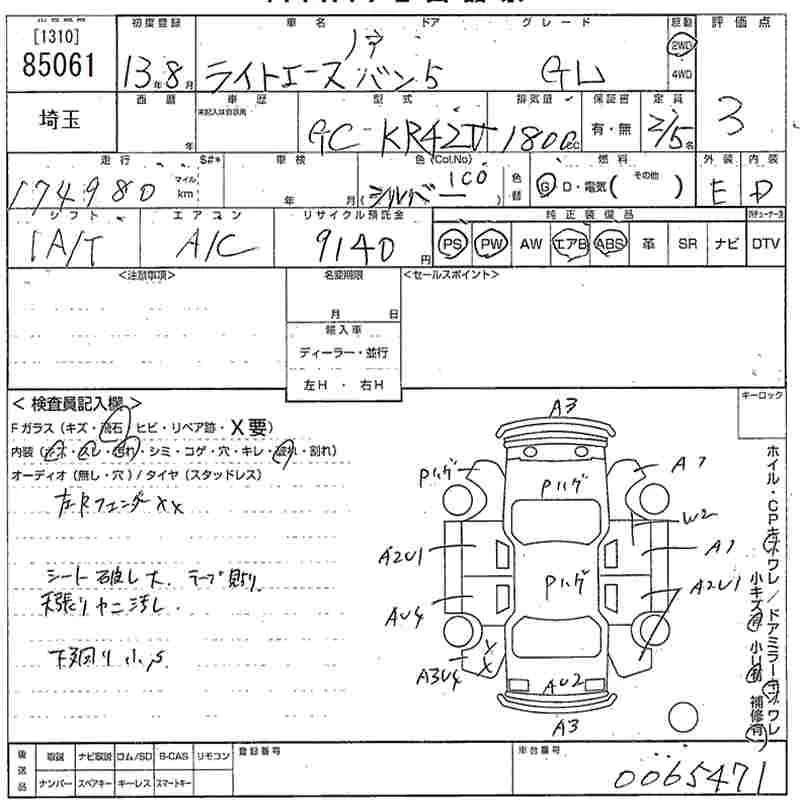 [1310]
85061
埼玉
初度登録
13年8月
車名 ドア グレード
ノア
ライトエース バン 5 GL
駆動
2WD
4WD
評価点
3
西暦
年
車歴
未記入は自家用
型式
GC-KR42V
排気量
1800cc
保証書
有・無
定員
2/5名
走行
174980
マイル
km
S#*
車検
年 月
色(Col.No)
(シルバー 1C0)
色替
燃料
G・D・電気( その他 )
外装
E
内装
D
シフト
1A/T
エアコン
A/C
リサイクル預託金
9140円
純正装備品
PS PW AW エアB ABS 革 SR ナビ DTV
<注意事項>
名変期限
月 日
輸入車
ディーラー・並行
左H・右H
<セールスポイント>
キーロック
<検査員記入欄>
Fガラス(キズ・飛石・ヒビ・リペア跡・X要)
内装(キズ・スレ・汚れ・シミ・コゲ・穴・キレ・破れ・割れ)
オーディオ(無し・穴)/タイヤ(スタッドレス)
左Rフェンダー XX
シート破レ大. テープ貼り
天張りヤニ汚レ.
下廻り小サ
A3
Pハゲ
Pハゲ
A1
W2
A2U1
A1
Pハゲ
AU4
A2U1
XX
A3U4
AU2
A3
ホイル・CPキズワレ/ドアミラーキズワレ
小キズ有 小凹有 補修有
後送品
取説 ナビ取説 ロム/SD B-CAS リモコン
ナンバー スペアキー キーレス スマートキー
登録番号
車台番号
0065471